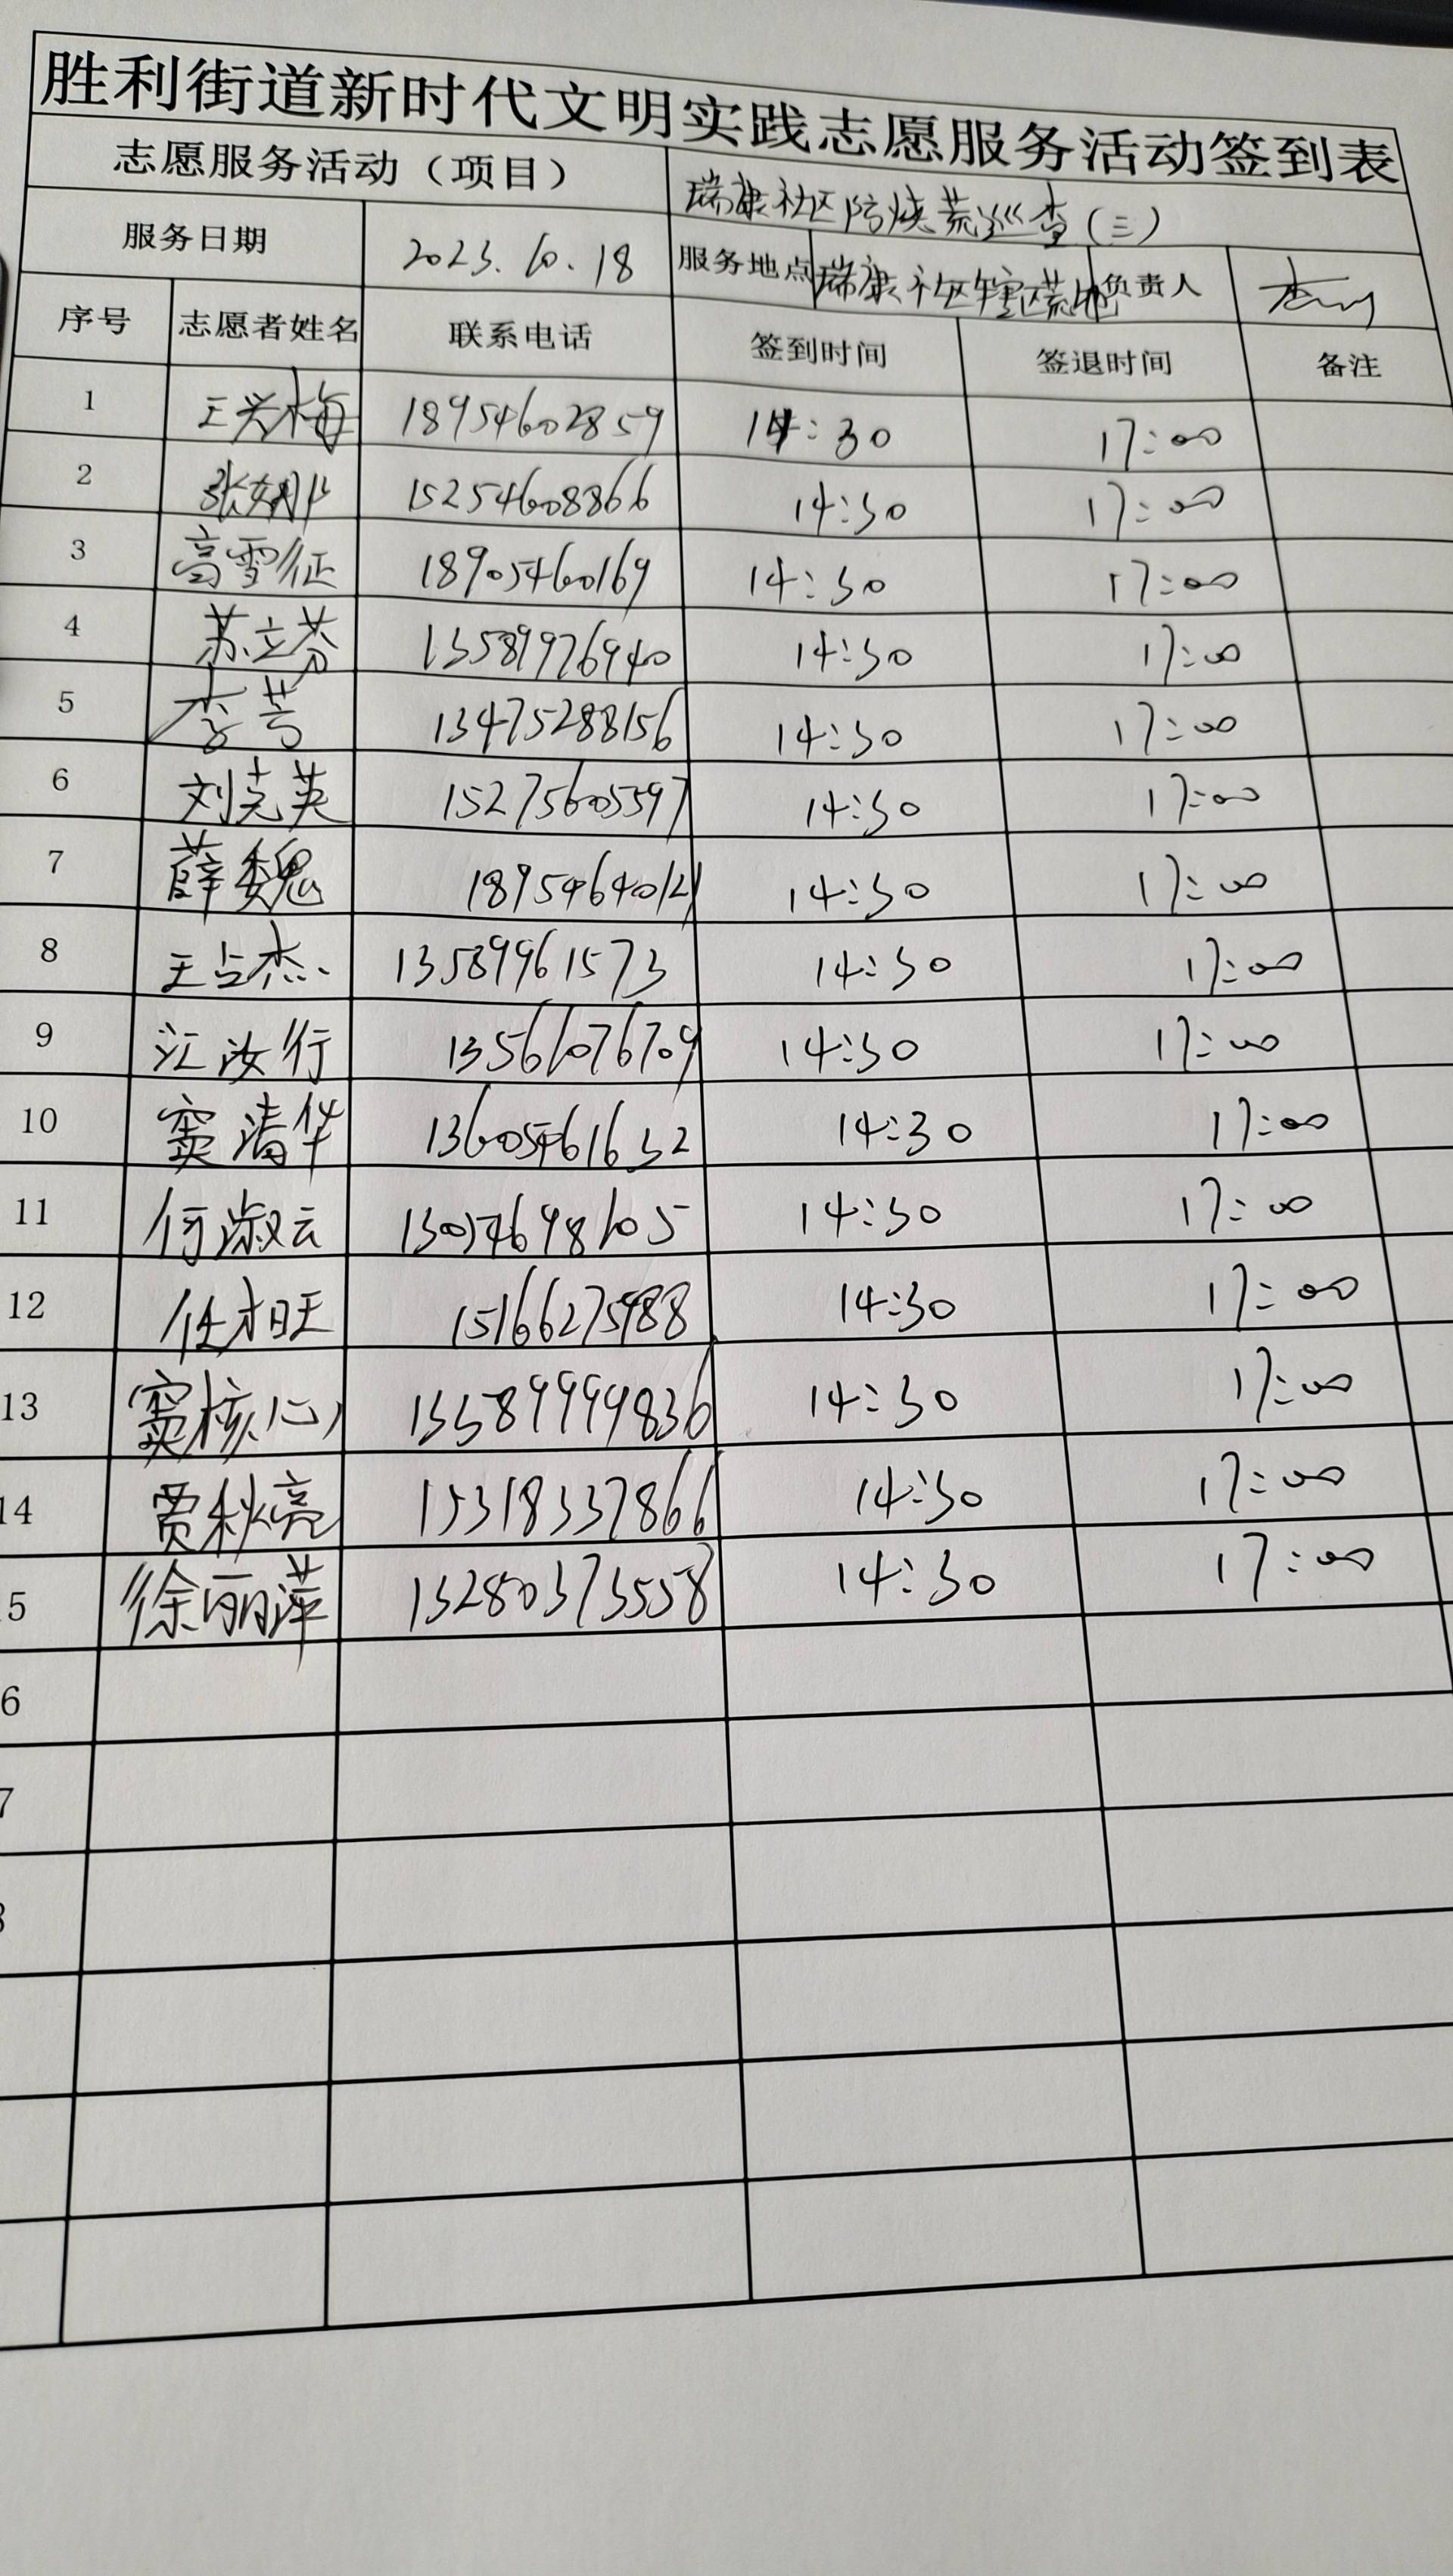 胜利街道新时代文明实践志愿服务活动签到表
志愿服务活动（项目） 瑞康社区防烧荒巡查(三)
服务日期 2023.10.18 服务地点 瑞康社区辖区荒地 负责人
序号 志愿者姓名 联系电话 签到时间 签退时间 备注
1 王兴梅 18954602859 14:30 17:00
2 15254608866 14:30 17:00
3 高雪征 18905460169 14:30 17:00
4 苏立芬 13589976940 14:30 17:00
5 李芳 13475288156 14:30 17:00
6 刘克英 15275605597 14:30 17:00
7 薛魏 18954640121 14:30 17:00
8 王占杰 13589961573 14:30 17:00
9 江汝行 13561076709 14:30 17:00
10 窦清华 13605461632 14:30 17:00
11 何淑云 13054698105 14:30 17:00
12 任相旺 15166275988 14:30 17:00
13 窦核心 13589999836 14:30 17:00
14 贾秋亮 15318337866 14:30 17:00
5 徐丽萍 13280373558 14:30 17:00
6
7